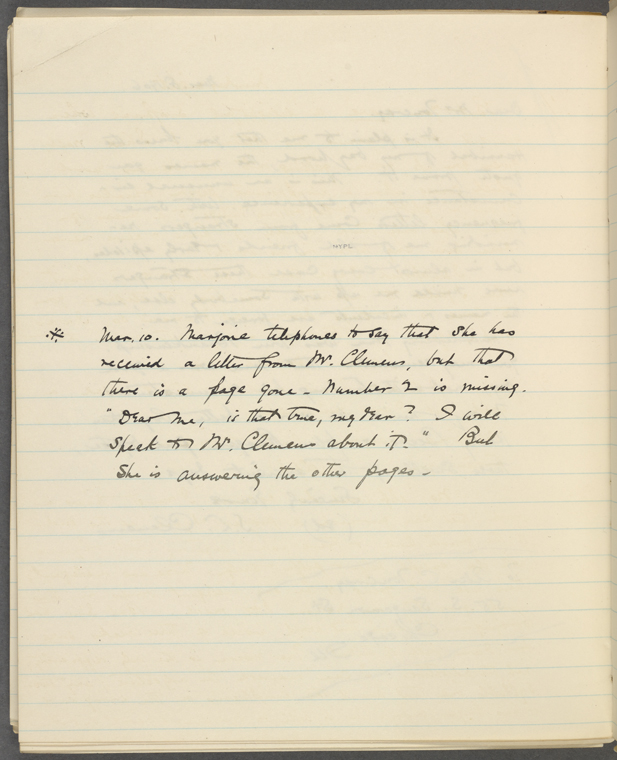 ※ Mar. 10. Marjorie telephones to say that she has
received a letter from Mr. Clemens, but that
there is a page gone - Number 2 is missing.
"Dear me, is that true, my dear? I will
speak to Mr. Clemens about it." But
she is answering the other pages -